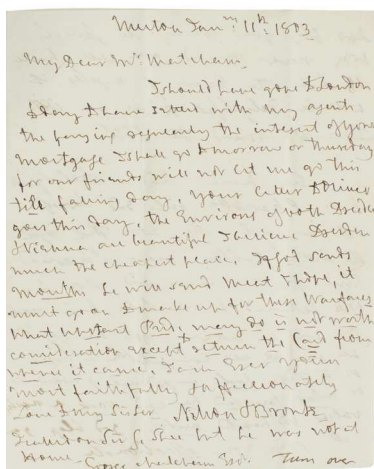 Merton Jan:ry 11th: 1803
My Dear Mr: Matcham,
I should have gone to London
to day to have settled with my agents
the paying regularly the interest of your
mortgage I shall go tomorrow or Thursday
for our friends will not let me go this
day, your letter
goes this day, the Environs of both Dresden
& Vienna are beautiful I believe Dresden
much the cheapest place,
months he will send meet Thos, it
must go on I make up for these
what many do is not worth
consideration except return the Card from
where it came, I am Ever Yours
most faithfully & affectionately
Love to my Sister Nelson & Bronte
I called on Sir G. Shee but he was not at
Home. George Matcham Esqr. Turn over